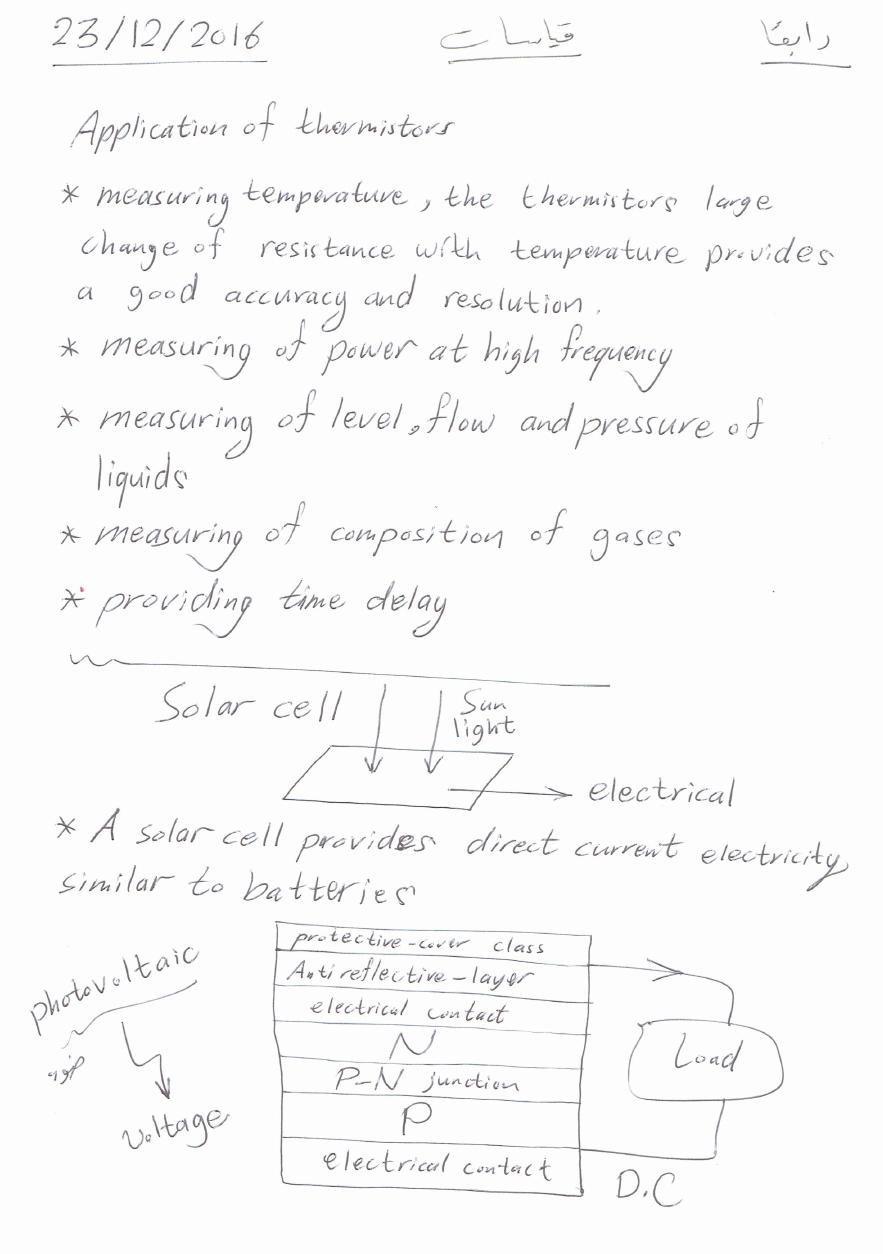 23/12/2016 قياسات رابعًا
Application of thermistors
* measuring temperature, the thermistors large
change of resistance with temperature provides
a good accuracy and resolution.
* measuring of power at high frequency
* measuring of level, flow and pressure of
liquids
* measuring of composition of gases
* providing time delay
Solar cell
Sun
light
electrical
* A solar cell provides direct current electricity
similar to batteries
photovoltaic
ضوء
voltage
protective-cover class
Anti reflective-layer
electrical contact
N
P-N junction
P
electrical contact
Load
D.C